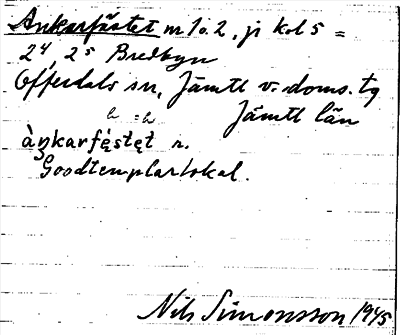 Ankarfästet nr 1 o. 2, jr kol 5 =
2⁴, 2⁵ Bredbyn
Offerdals sn, Jämtl v. doms. tg
Jämtl län
àŋkarfę́stęt n.
Goodtemplarlokal.
Nils Simonsson 1945